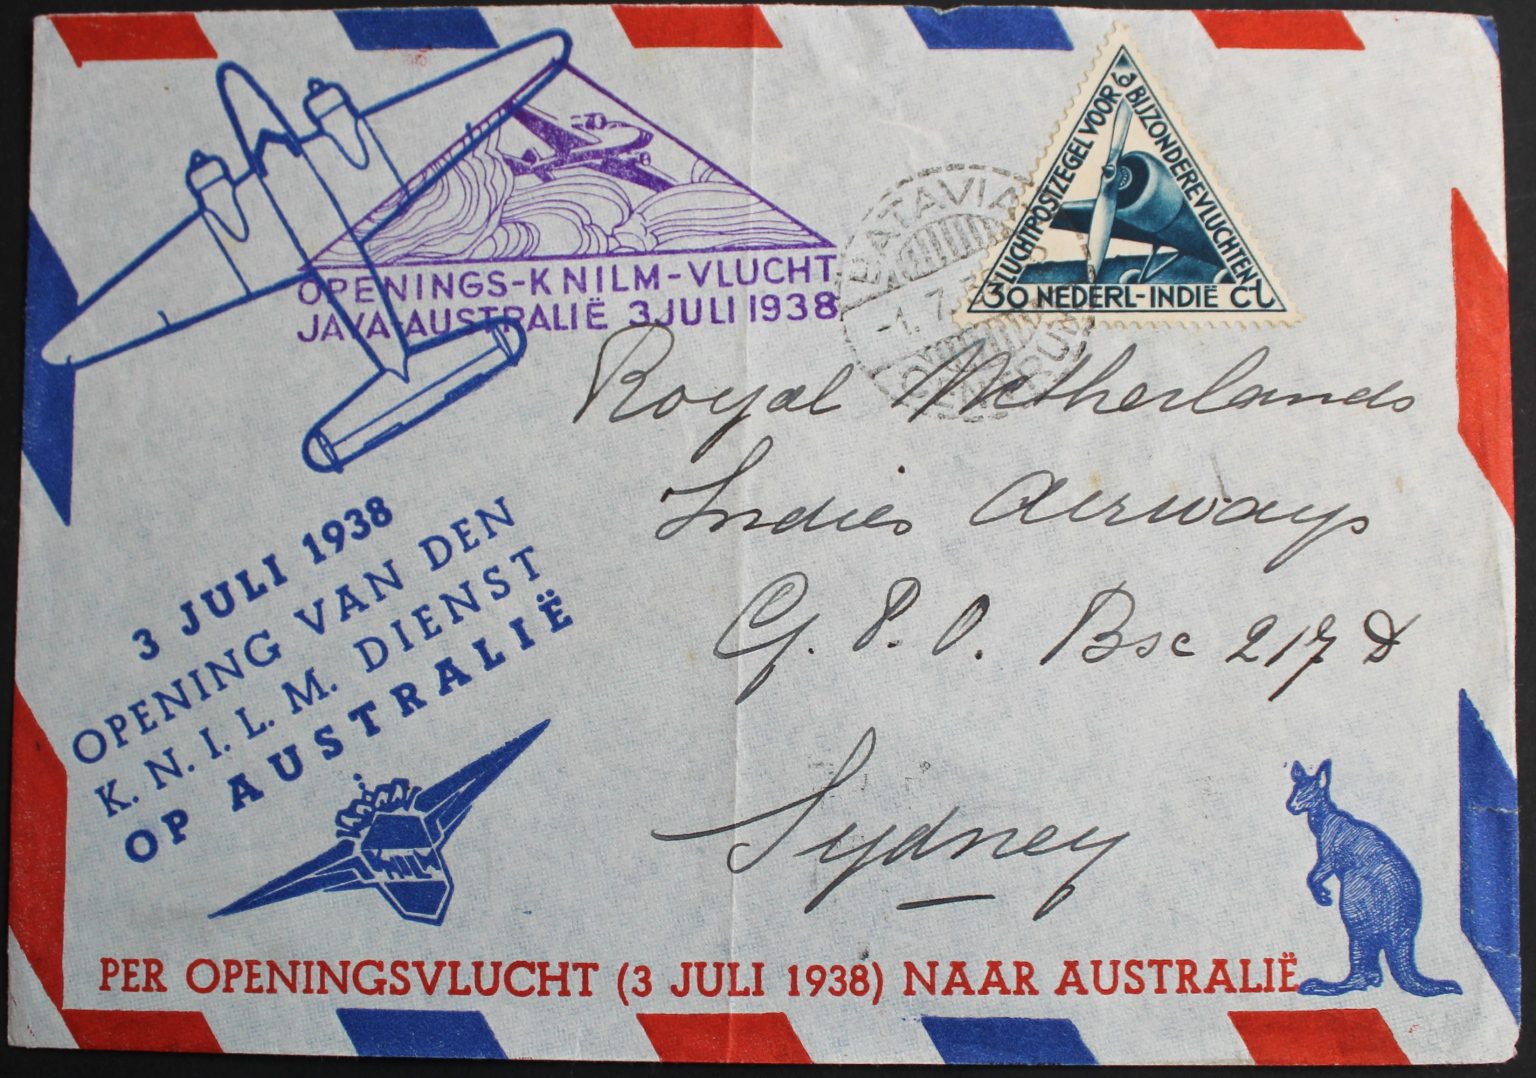 OPENINGS-KNILM-VLUCHT
JAVA-AUSTRALIË 3 JULI 1938
BATAVIA
-1.7
CENTRUM
LUCHTPOSTZEGEL VOOR
BIJZONDEREVLUCHTEN
30 NEDERL-INDIË CT
Royal Netherlands
Indies Airways
G. P. O. Box 217 D
Sydney
3 JULI 1938
OPENING VAN DEN
K. N. I. L. M. DIENST
OP AUSTRALIË
KNILM
PER OPENINGSVLUCHT (3 JULI 1938) NAAR AUSTRALIË